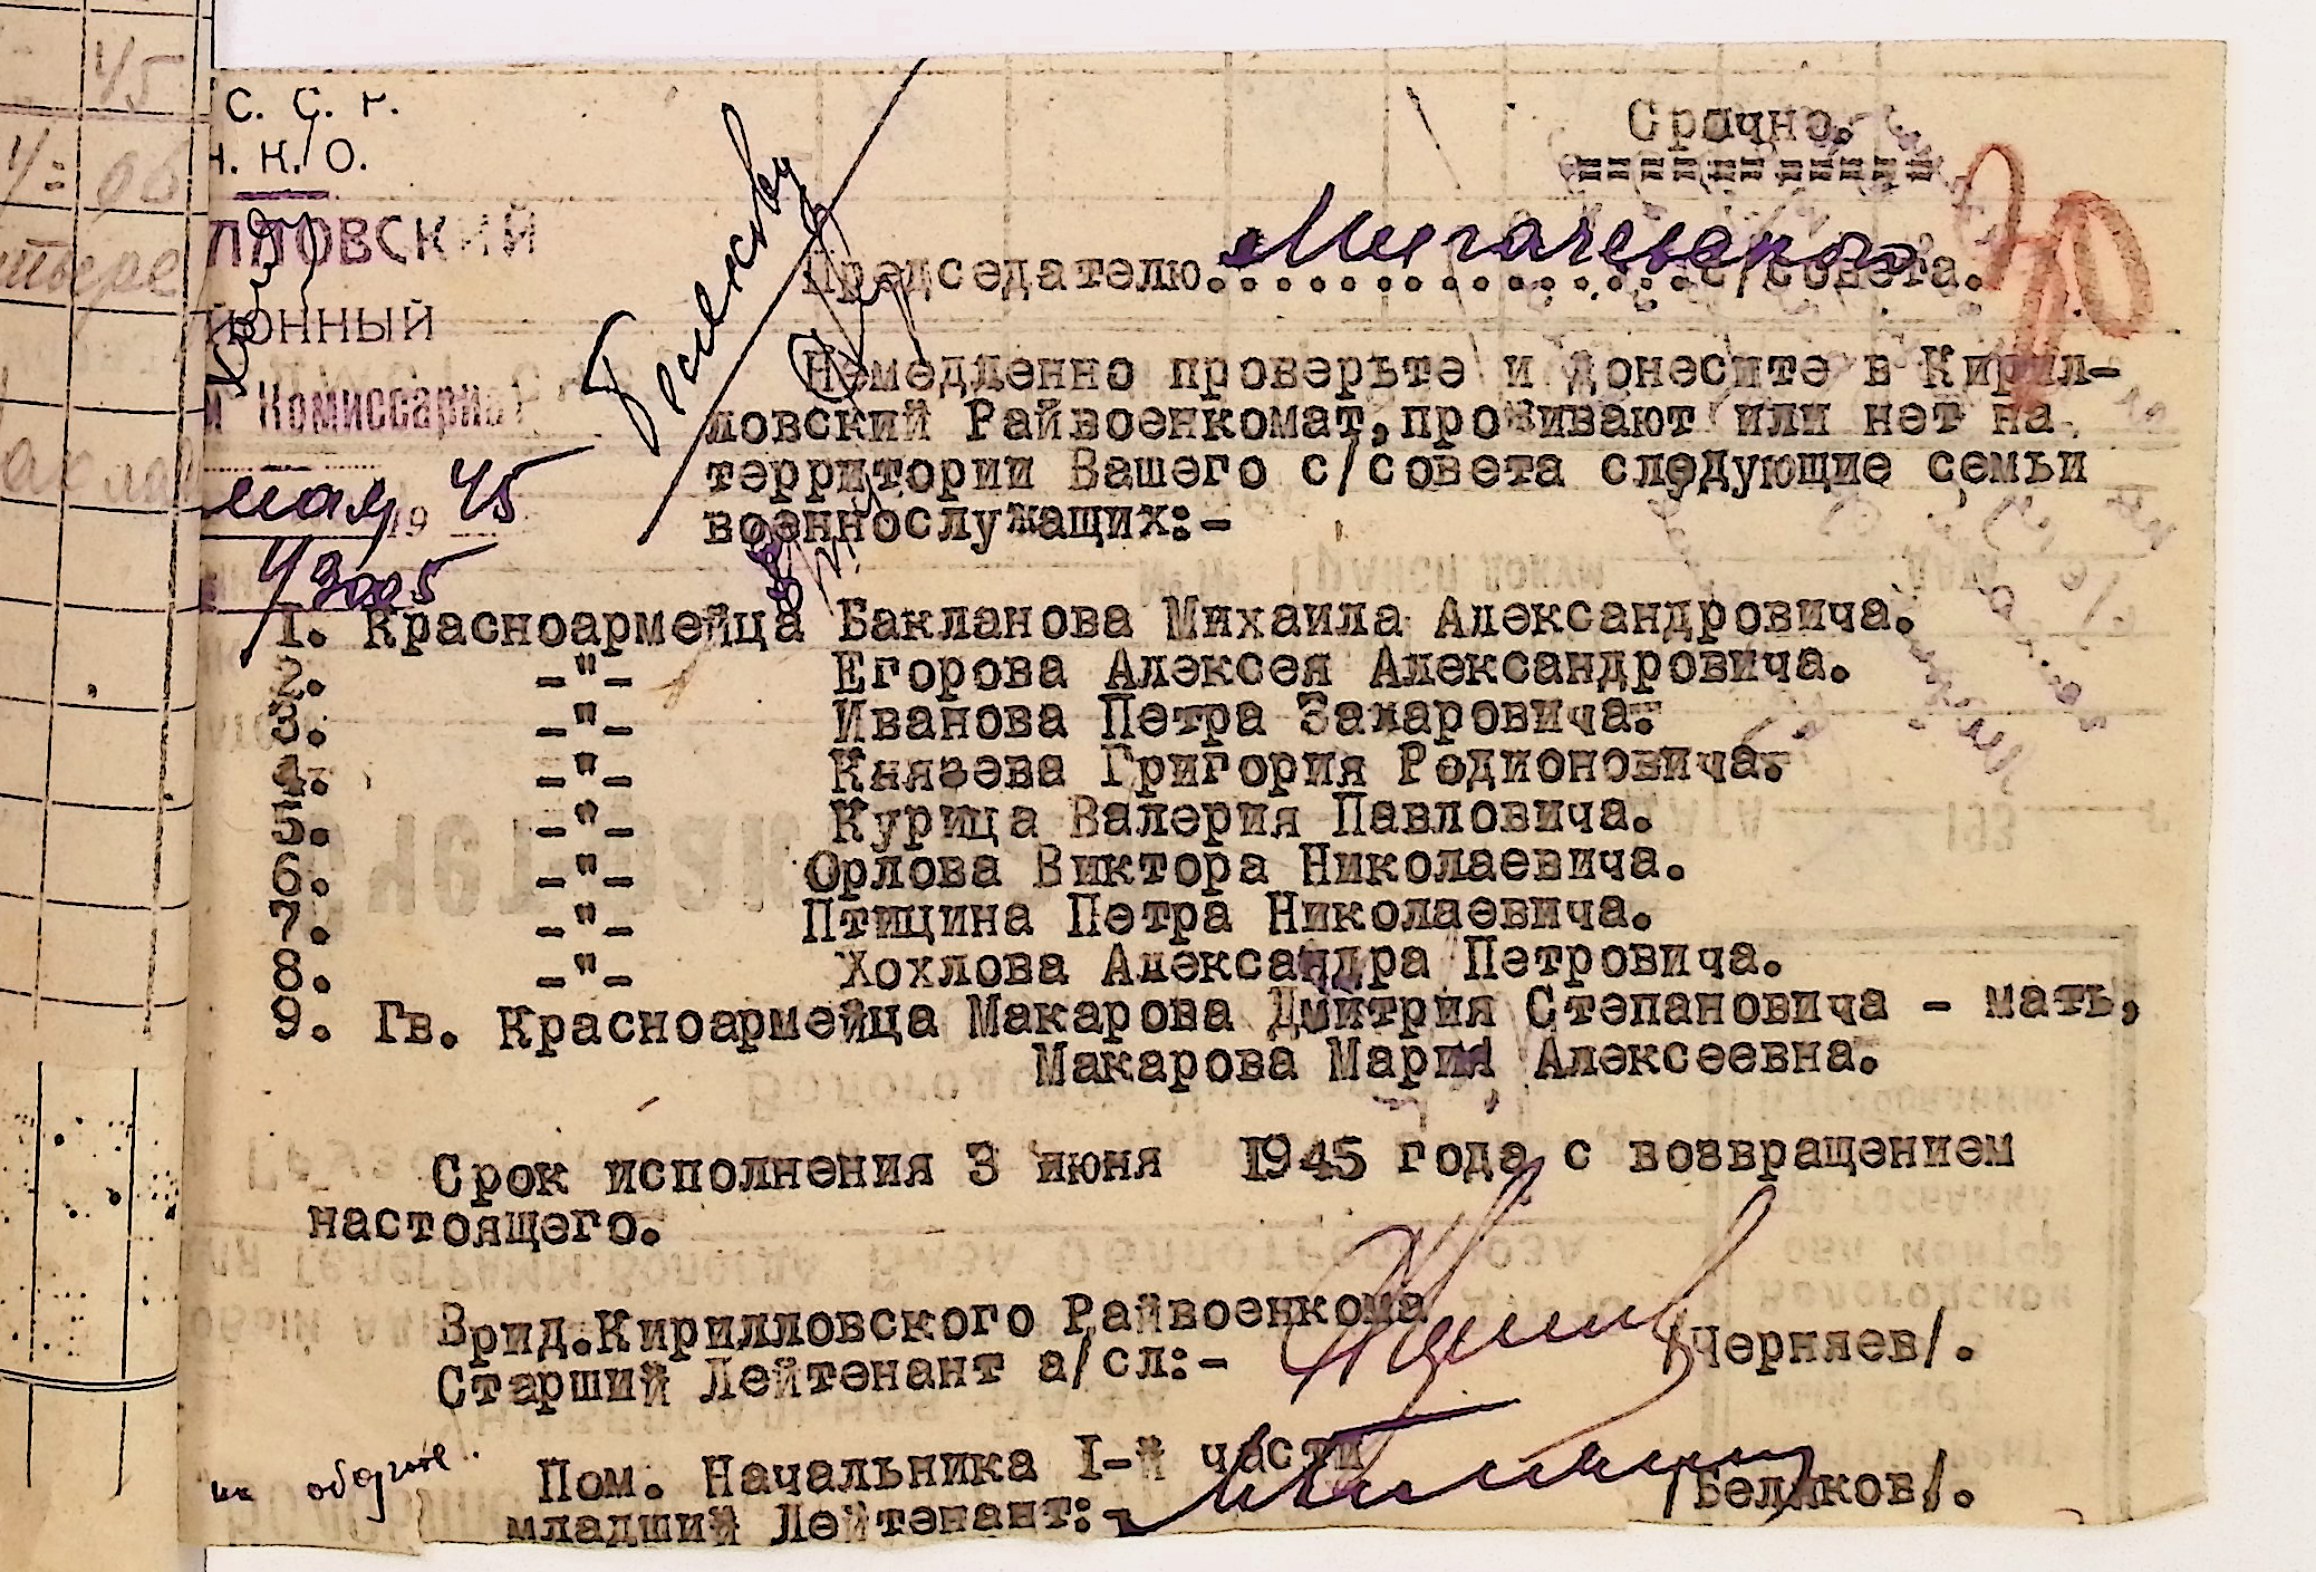 С. С. Р.
Н. К. О.
ЛЛОВСКИЙ
ЙОННЫЙ
Комиссариат
мая 19 45
4/3005
Срочно.
Председателю Мигачевского с/совета.
Немедленно проверьте и донесите в Кирил-
ловский Райвоенкомат, проживают или нет на
территории Вашего с/совета следующие семьи
военнослужащих:-
1. Красноармейца Бакланова Михаила Александровича.
2. -"- Егорова Алексея Александровича.
3. -"- Иванова Петра Захаровича.
4. -"- Князева Григория Родионовича.
5. -"- Курица Валерия Павловича.
6. -"- Орлова Виктора Николаевича.
7. -"- Птицина Петра Николаевича.
8. -"- Хохлова Александра Петровича.
9. Гв. Красноармейца Макарова Дмитрия Степановича - мать,
Макарова Мария Алексеевна.
Срок исполнения 3 июня 1945 года с возвращением
настоящего.
Врид.Кирилловского Райвоенкома
Старший Лейтенант а/сл:- /Черняев/.
Пом. Начальника I-й части
младший Лейтенант:- /Беляков/.
на обороте